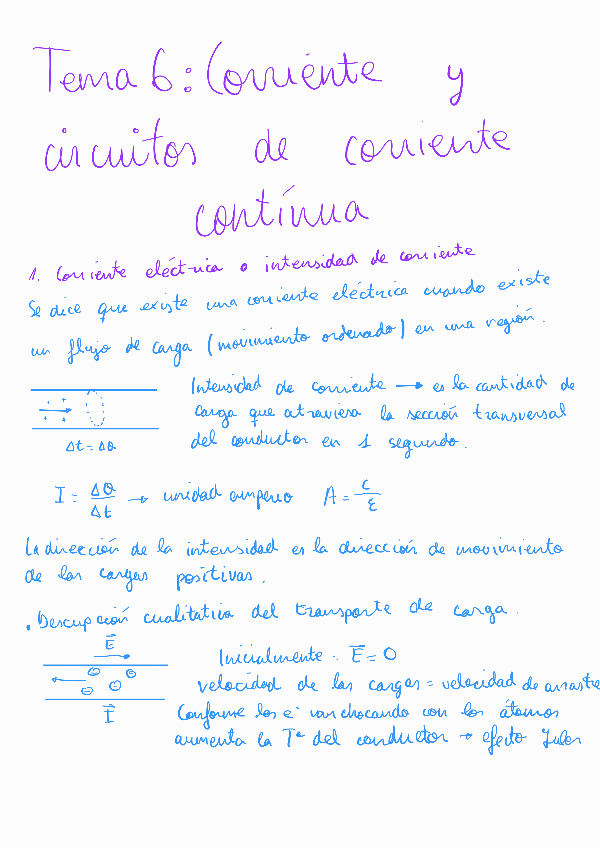 Tema 6: Corriente y
circuitos de corriente
contínua
1. Corriente eléctrica o intensidad de corriente
Se dice que existe una corriente eléctrica cuando existe
un flujo de carga (movimiento ordenado) en una región.
Intensidad de corriente → es la cantidad de
carga que atraviesa la sección transversal
del conductor en 1 segundo.
Δt = ΔQ
I = ΔQ/Δt → unidad amperio A = C/ε
La dirección de la intensidad es la dirección de movimiento
de las cargas positivas.
• Descripción cualitativa del transporte de carga.
E⃗
Inicialmente: E⃗ = 0
velocidad de las cargas = velocidad de arrastre
I⃗
Conforme los e⁻ van chocando con los átomos
aumenta la Tª del conductor → efecto Juler